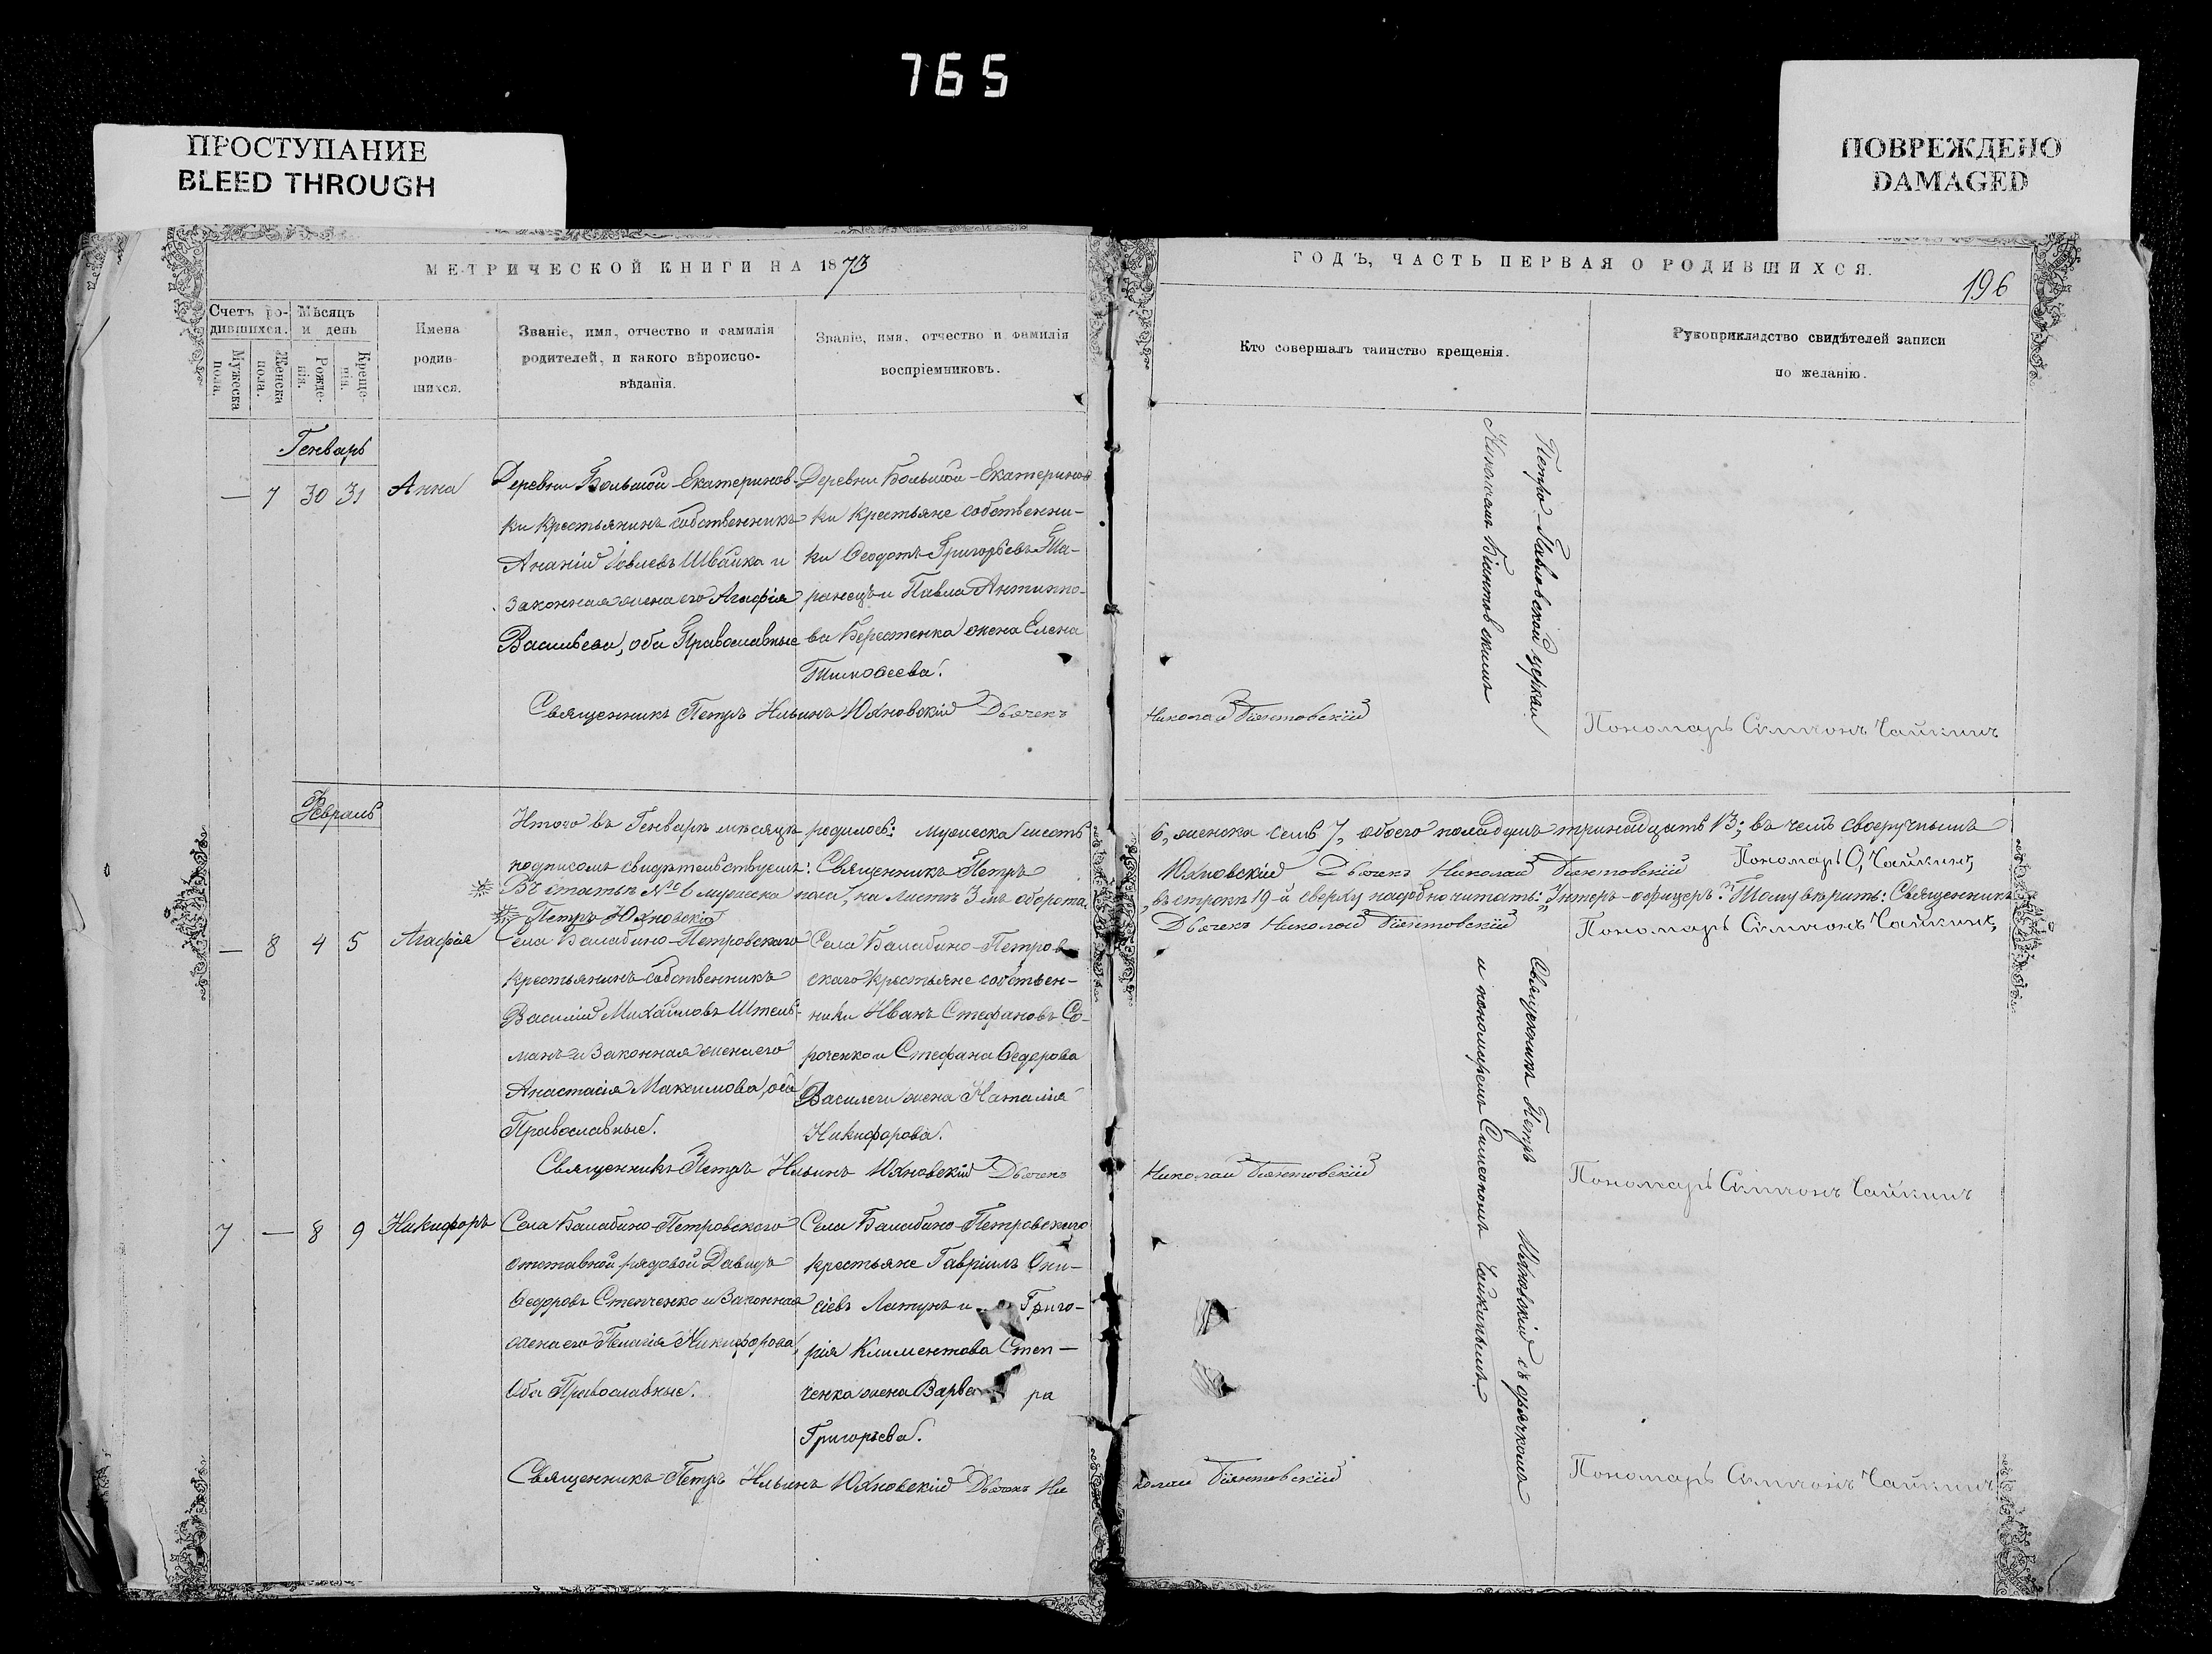 765
ПРОСТУПАНИЕ
BLEED THROUGH
ПОВРЕЖДЕНО
DAMAGED
МЕТРИЧЕСКОЙ КНИГИ НА 1873
ГОДЪ, ЧАСТЬ ПЕРВАЯ О РОДИВШИХСЯ.
196
Счетъ ро-
дившихся.
Мужеска
пола.
Женска
пола.
Мѣсяцъ
и день
Рожде-
нія.
Креще-
нія.
Имена
родив-
шихся.
Званіе, имя, отчество и фамилія
родителей, и какого вѣроиспо-
вѣданія.
Званіе, имя, отчество и фамилія
воспріемниковъ.
Кто совершалъ таинство крещенія.
Рукоприкладство свидѣтелей записи
по желанію.
Генварь
— 7 30 31 Анна
Деревни Большой-Екатеринов-
ки крестьянинъ собственникъ
Ананій Іовлевъ Швайка и
законная жена его Агафія
Васильева, оба Православные
Деревни Большой-Екатеринов
ки крестьяне собственни-
ки Ѳеодотъ Григорьевъ Та-
ранецъ и Павла Антипо-
ва Берестенка жена Елена
Тимоѳеева.
Священникъ Петръ Ильинъ Юхновскій Дьячекъ
Николай Біянтовскій
Пономарь Симеонъ Чайкинъ
Петро-Павловской церкви
Николаемъ Біянтовскимъ
Февраль
Итого въ Генварѣ мѣсяцѣ родилось: мужеска шесть
6, женска семь 7, обоего пола душъ тринадцать 13; въ чемъ своеручнымъ
подписомъ свидѣтельствуемъ: Священникъ Петръ
Юхновскій Дьячекъ Николай Біянтовскій Пономарь С, Чайкинъ,
Въ статьѣ № 6 мужеска пола, на листѣ 3мъ оборота
въ строкѣ 19-й сверху надобно читать: „Унтеръ-офицеръ." Тому вѣрить: Священникъ
Петръ Юхновскій
Дьячекъ Николай Біянтовскій Пономарь Симеонъ Чайкинъ,
— 8 4 5 Агафія
Села Балабино-Петровскаго
крестьянинъ собственникъ
Василій Михайловъ Штель-
махъ и законная жена его
Анастасія Максимова, оба
Православные.
Села Балабино-Петров
скаго крестьяне собствен-
ники Иванъ Стефановъ Со-
роченко и Стефана Ѳедорова
жена Наталія
Никифорова.
Священникъ Петръ Ильинъ Юхновскій Дьячекъ
Николай Біянтовскій
Пономарь Симеонъ Чайкинъ
7 — 8 9 Никифоръ
Села Балабино-Петровскаго
отставной рядовой Давидъ
Ѳедоровъ Степченко и законная
жена его Пелагія Никифорова,
Оба Православные.
Села Балабино-Петровскаго
крестьяне Гавріилъ Они-
сіевъ и Григо-
рія Климентова Степ-
ченка жена Варва ра
Григорьева.
Священникъ Петръ Ильинъ Юхновскій Дьячекъ Ни
колай Біянтовскій
Пономарь Симеонъ Чайкинъ
Священникъ Петръ Юхновскій съ дьячкомъ
и пономаремъ Симеономъ Чайкинымъ.